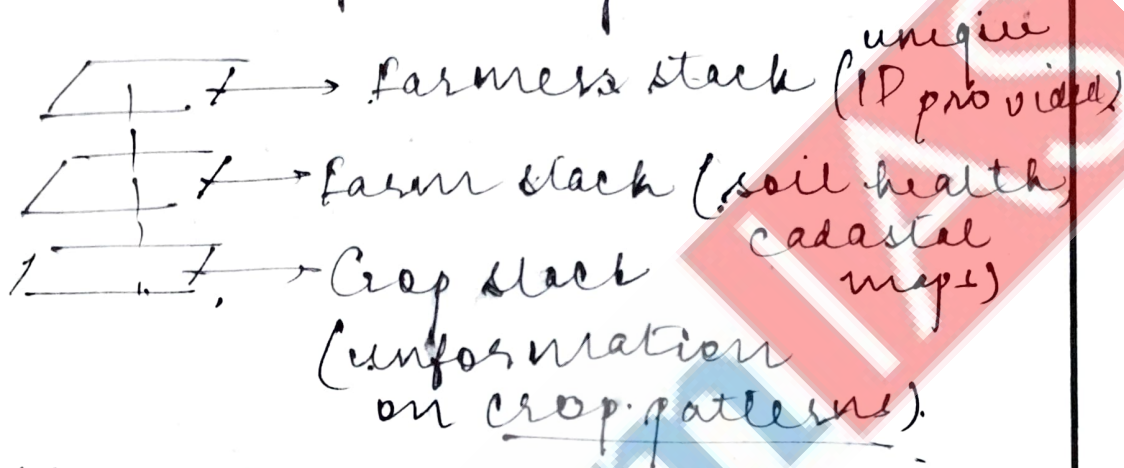 Farmers stack (unique
ID provided)
Farm stack (soil health,
cadastal
maps)
Crop stack
(information
on crop patterns).
IAS